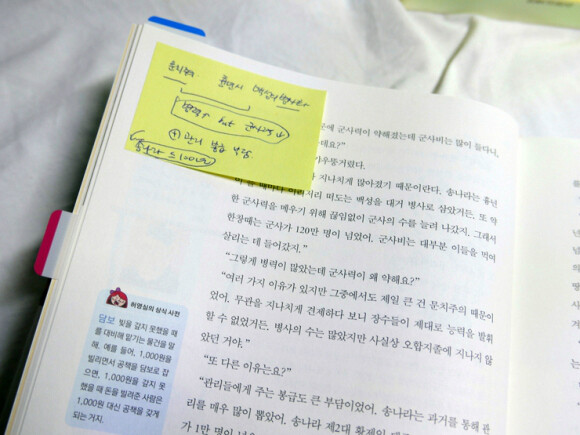 문치주의
병력↑ but 군사력↓
+ 관리 봉급 부담
문에 군사력이 약해졌는데 군사비는 많이 들다니,
대요?"
갸우뚱거렸다.
지나치게 많아졌기 때문이란다. 송나라는 흉년
떠도는 백성을 대거 병사로 삼았거든. 또 약
한 군사력을 메우기 위해 끊임없이 군사의 수를 늘려 나갔지. 그래서
한창때는 군사가 120만 명이 넘었어. 군사비는 대부분 이들을 먹여
살리는 데 들어갔지."
"그렇게 병력이 많았는데 군사력이 왜 약해요?"
"여러 가지 이유가 있지만 그중에서도 제일 큰 건 문치주의 때문이
었어. 무관을 지나치게 견제하다 보니 장수들이 제대로 능력을 발휘
할 수 없었거든. 병사의 수는 많았지만 사실상 오합지졸에 지나지 않
았던 거야."
"또 다른 이유는요?"
"관리들에게 주는 봉급도 큰 부담이었어. 송나라는 과거를 통해 관
리를 매우 많이 뽑았어. 송나라 제2대 황제인 태
가 1만 명이
허영심의 상식 사전
담보 빚을 갚지 못했을 때
를 대비해 맡기는 물건을 말
해. 예를 들어, 1,000원을
빌리면서 공책을 담보로 잡
으면, 1,000원을 갚지 못
했을 때 돈을 빌려준 사람은
1,000원 대신 공책을 갖게
되는 거지.